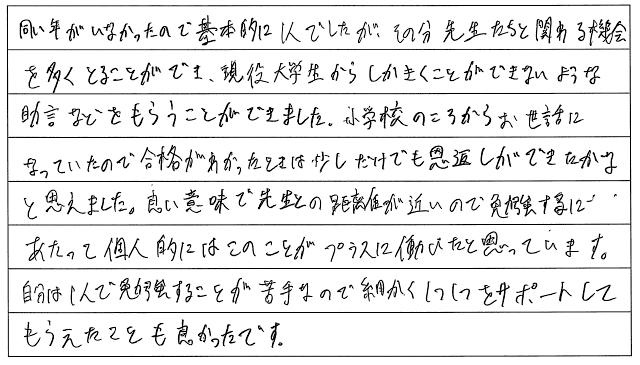 同い年がいなかったので基本的に1人でしたが、その分先生たちと関わる機会
を多くとることができ、現役大学生からしかきくことができないような
助言などをもらうことができました。小学校のころからお世話に
なっていたので合格がわかったときは少しだけでも恩返しができたかな
と思えました。良い意味で先生との距離が近いので勉強するに
あたって個人的にはこのことがプラスに働いたと思っています。
自分は1人で勉強することが苦手なので細かく1つ1つをサポートして
もらえたことも良かったです。